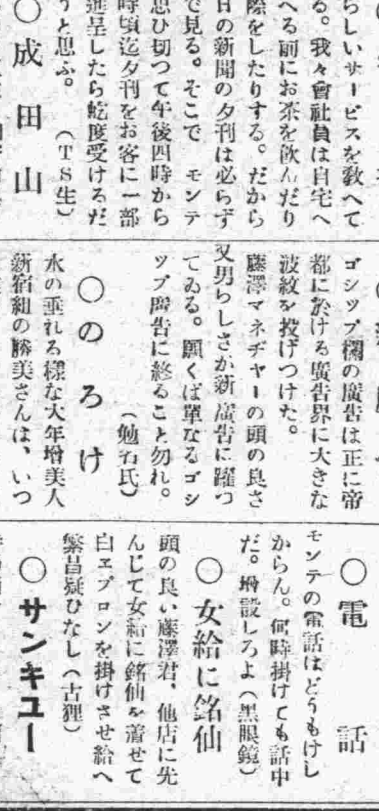 らしいサービスを敎へて
る。我々會社員は自宅へ
へる前にお茶を飮んだり
際をしたりする。だから
日の新聞の夕刊は必らず
で見る。そこで モンテ
思ひ切つて午後四時から
時頃迄夕刊をお客に一部
進呈したら屹度受けるだ
うと思ふ。 (TS生)
○成田山
ゴシップ欄の廣告は正に帝
都に於ける廣告界に大きな
波紋を投げつけた。
藤澤マネヂャーの頭の良さ
又男らしさが新廣告に躍つ
てゐる。願くば單なるゴシ
ップ廣告に終ること勿れ。
(勉石氏)
○のろけ
水の垂れる樣な大年增美人
新宿組の勝美さんは、いつ
○電話
モンテの電話はどうもけし
からん。何時掛けても話中
だ。增設しろよ(黑眼鏡)
○女給に銘仙
頭の良い藤澤君、他店に先
んじて女給に銘仙を著せて
白エプロンを掛けさせ給へ
繁昌疑ひなし(古狸)
○サンキユー